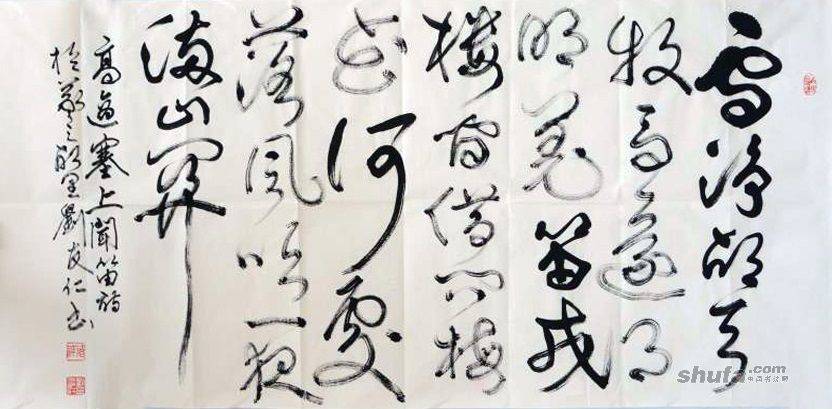 雪净胡天
牧馬還月
明羌笛戍
楼間借问梅
花何處
落風吹一夜
滿山關
高適塞上聞笛詩
劉友仁書
shufa.com
中国书法网